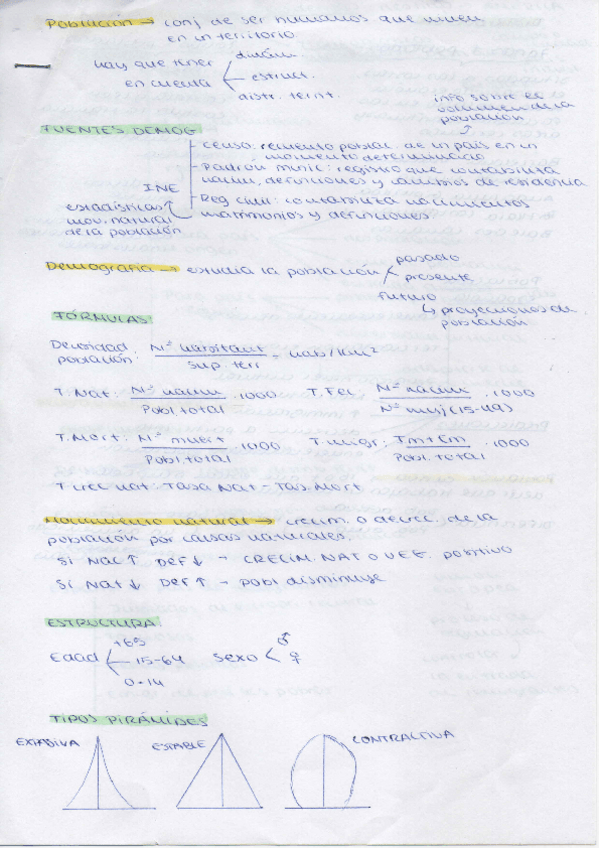 Población → conj. de ser humanos que viven
en un territorio.
hay que tener
en cuenta
dinám.
estruct.
distr. territ.
info sobre el
volumen de la
población
FUENTES DEMOG
- Censo: recuento poblac. de un país en un
momento determinado
- Padrón munic: registro que contabiliza
nacim, defunciones y cambios de residencia
- Reg civil: contabiliza nacimientos
matrimonios y defunciones
INE
estadísticas
mov. natural
de la población
Demografía → estudia la población
pasado
presente
futuro
↳ proyecciones de
población
FÓRMULAS
Densidad
población: Nº habitant / sup. terr = hab/km²
T. Nat: Nº nacim / Pobl. total · 1000 T. Fec Nº nacimi / Nº muj (15-49) · 1000
T. Mort: Nº muert / Pobl. total · 1000 T. migr: Im + Em / Pobl. total · 1000
T crec nat: Tasa Nat - Tas. Mort
Movimiento natural → crecim. o decrec. de la
población por causas naturales.
Si Nac↑ Def↓ - CRECIM. NAT O VEG. positivo
Si Nat↓ Def↑ - pobl disminuye
ESTRUCTURA
Edad
+65
15-64
0-14
Sexo ♂ ♀
TIPOS PIRÁMIDES
ESTABLE
CONTRACTIVA